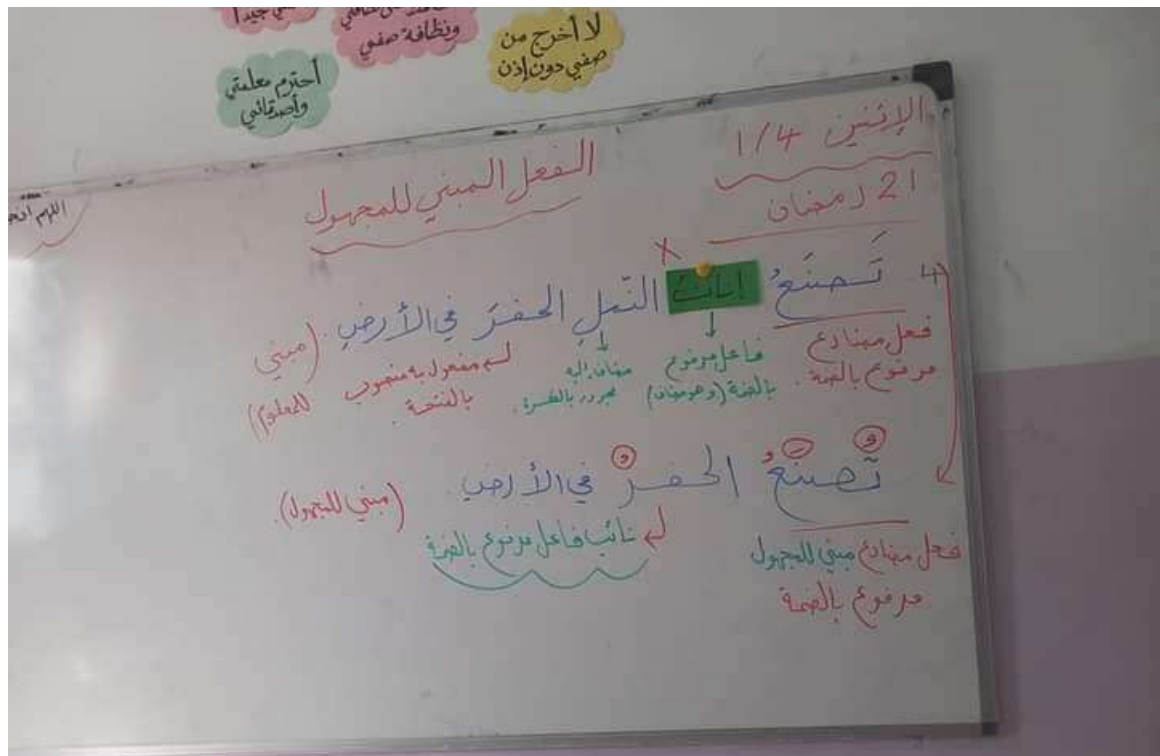 جيدا
ونظافة صفي
لا أخرج من
صفي دون إذن
أحترم معلمتي
وأصدقائي
الإثنين 1/4
21 رمضان
الفعل المبني للمجهول
اللهم
4 تَصنَعُ إناثُ النّملِ الحفرَ في الأرضِ. (مبني للمعلوم)
فعل مضارع
مرفوع بالضمة.
فاعل مرفوع
بالضمة (وهو مضاف)
مضاف إليه
مجرور بالكسرة.
مفعول به منصوب
بالفتحة.
تُصنَعُ الحفرُ في الأرضِ. (مبني للمجهول).
فعل مضارع مبني للمجهول
مرفوع بالضمة
نائب فاعل مرفوع بالضمة